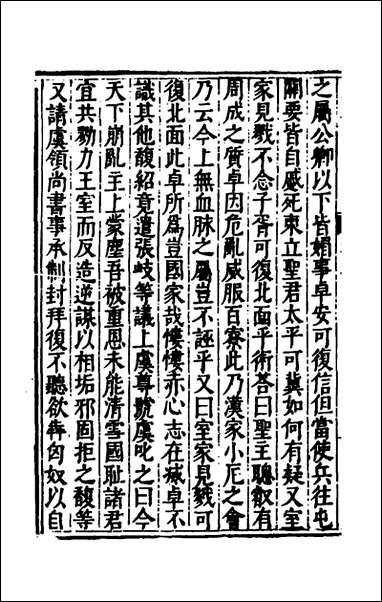 之屬公卿以下皆媚事卓安可復信但當使兵往屯
關要皆自蹙死東立聖君太平可冀如何有疑又室
家見戮不念子胥可復北面乎術答曰聖主聰叡有
周成之質卓因危亂威服百寮此乃漢家小厄之會
乃云今上無血脉之屬豈不誣乎又曰室家見戮可
復北面此卓所爲豈國家哉慺慺赤心志在滅卓不
識其他馥紹竟遣張岐等議上虞尊號虞叱之曰今
天下崩亂主上蒙塵吾被重恩未能清雪國耻諸君
宜共勠力王室而反造逆謀以相垢邪固拒之馥等
又請虞領尚書事承制封拜復不聽欲犇匈奴以自